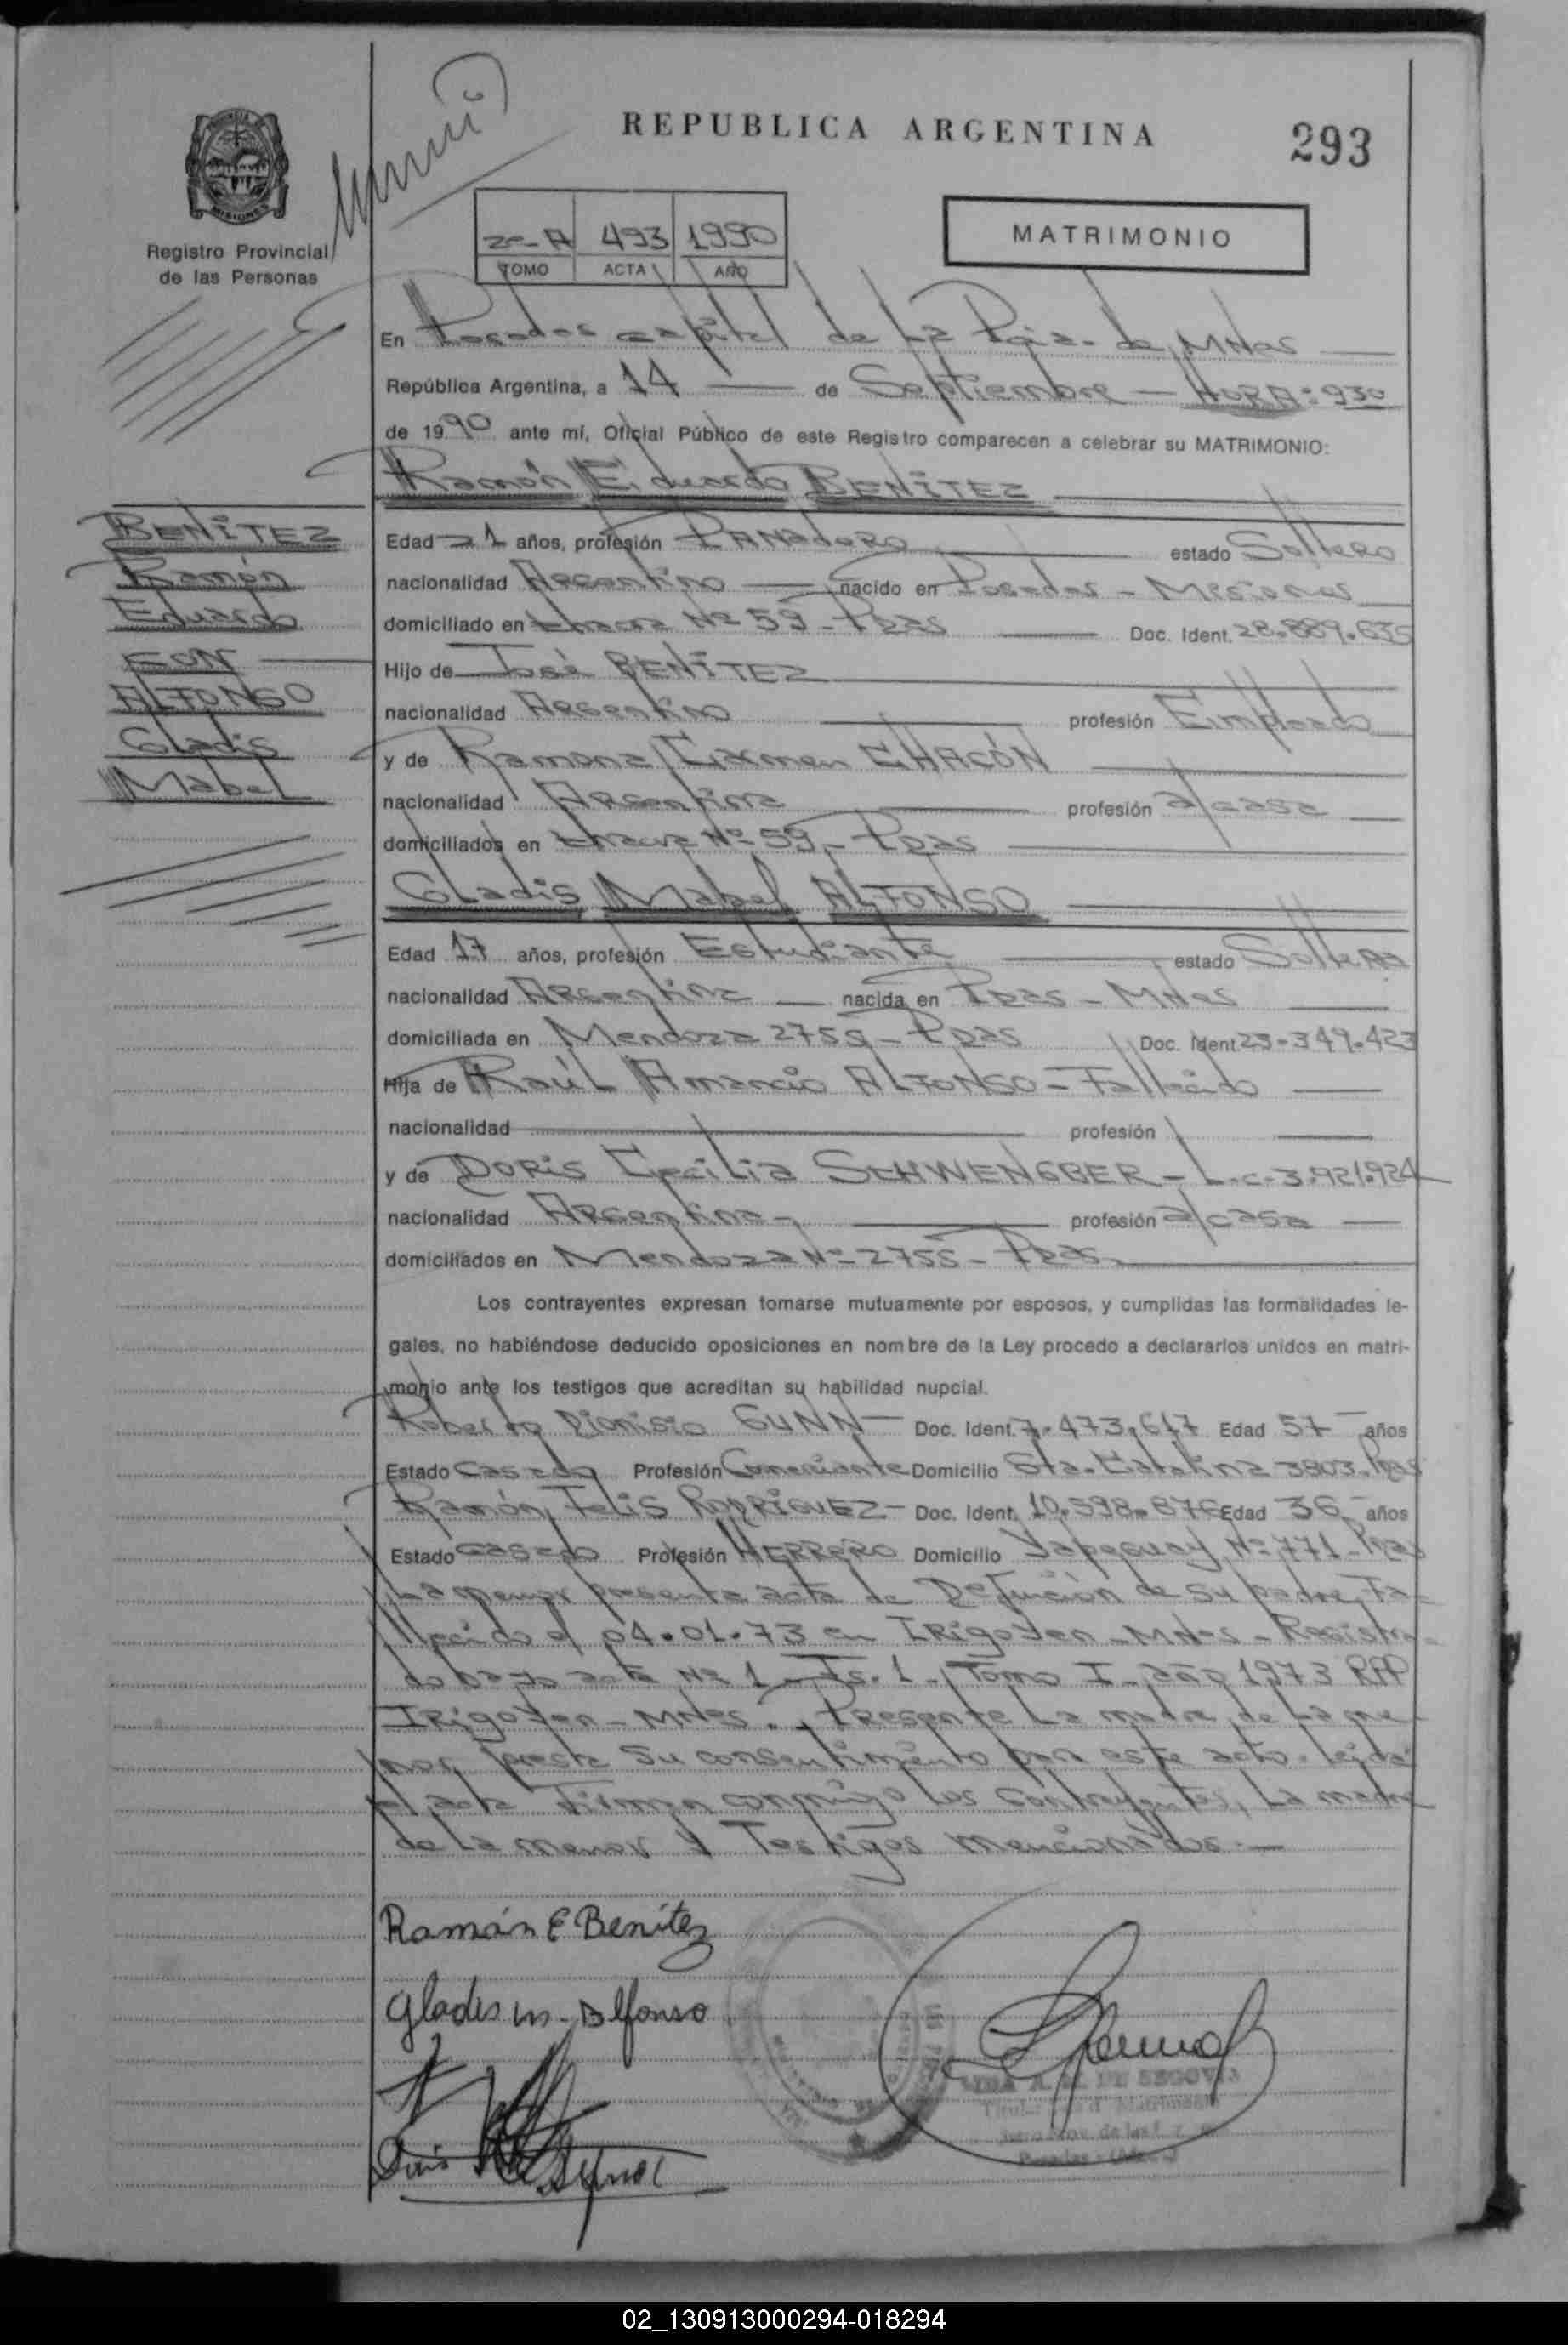 REPUBLICA ARGENTINA
293
MISIONES
Registro Provincial
de las Personas
2º-A 493 1990
TOMO ACTA AÑO
MATRIMONIO
En Posadas capital de La Pcia. de MNes
República Argentina, a 14 de Septiembre - HORA: 930
de 1990 ante mí, Oficial Público de este Registro comparecen a celebrar su MATRIMONIO:
Ramón Eduardo BENITEZ
BENITEZ
Ramón
Eduardo
CON
ALFONSO
Gladis
Mabel
Edad 21 años, profesión PANADERO estado Soltero
nacionalidad Argentino nacido en Posadas - Misiones
domiciliado en chacra Nº 59 - Pdas Doc. Ident. 28.889.635
Hijo de José BENITEZ
nacionalidad Argentino profesión Empleado
y de Ramona Carmen CHACÓN
nacionalidad Argentina profesión a/casa
domiciliados en chacra Nº 59 - Pdas
Gladis Mabel ALFONSO
Edad 17 años, profesión Estudiante estado Soltera
nacionalidad Argentina nacida en Pdas - MNes
domiciliada en Mendoza 2755 - Pdas Doc. Ident. 23.349.423
Hija de Raúl Amancio ALFONSO - Fallecido
nacionalidad profesión
y de DORIS Cecilia SCHWENGBER - L.C. 3.921.924
nacionalidad Argentina - profesión a/casa
domiciliados en Mendoza Nº 2755 - Pdas.
Los contrayentes expresan tomarse mutuamente por esposos, y cumplidas las formalidades le-
gales, no habiéndose deducido oposiciones en nombre de la Ley procedo a declararlos unidos en matri-
monio ante los testigos que acreditan su habilidad nupcial.
Roberto Dionisio GUNN - Doc. Ident. 7.473.617 Edad 57 años
Estado casado Profesión Comerciante Domicilio Sta. Catalina 3803. Pdas
Ramón Felis RODRIGUEZ - Doc. Ident. 10.598.876 Edad 36 años
Estado casado Profesión HERRERO Domicilio Yapeguay Nº 771 - Pdas
La menor presenta acta de Defunción de su padre, Fa-
llecido el 04.01.73 en IRigoyen - MNes - Registra-
do bajo acta Nº 1 - Fs. 1 - Tomo I - año 1973 RPP
IRigoyen - MNes. Presente La madre de La me-
nor presta su consentimiento para este acto. Leída
el acta Firman conmigo los contrayentes, La madre
de La menor y Testigos mencionados.-
Ramón E Benítez
Gladis M. Alfonso
A. M. DE SEGOVIA
02_130913000294-018294